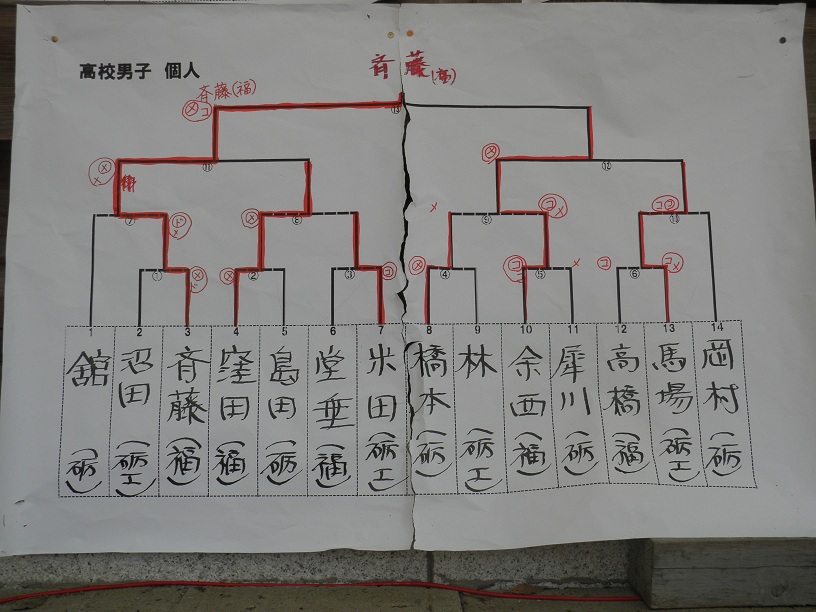 高校男子 個人
斉藤
斉藤(福)
⑬
⑪
⑫
⑦
⑧
⑨
⑩
①
②
③
④
⑤
⑥
1 2 3 4 5 6 7 8 9 10 11 12 13 14
舘(砺)
沼田(砺工)
斉藤(福)
窪田(福)
島田(砺)
堂垂(福)
米田(砺工)
橋本(砺)
林(砺工)
余西(福)
犀川(砺)
高橋(福)
馬場(砺工)
岡村(砺)